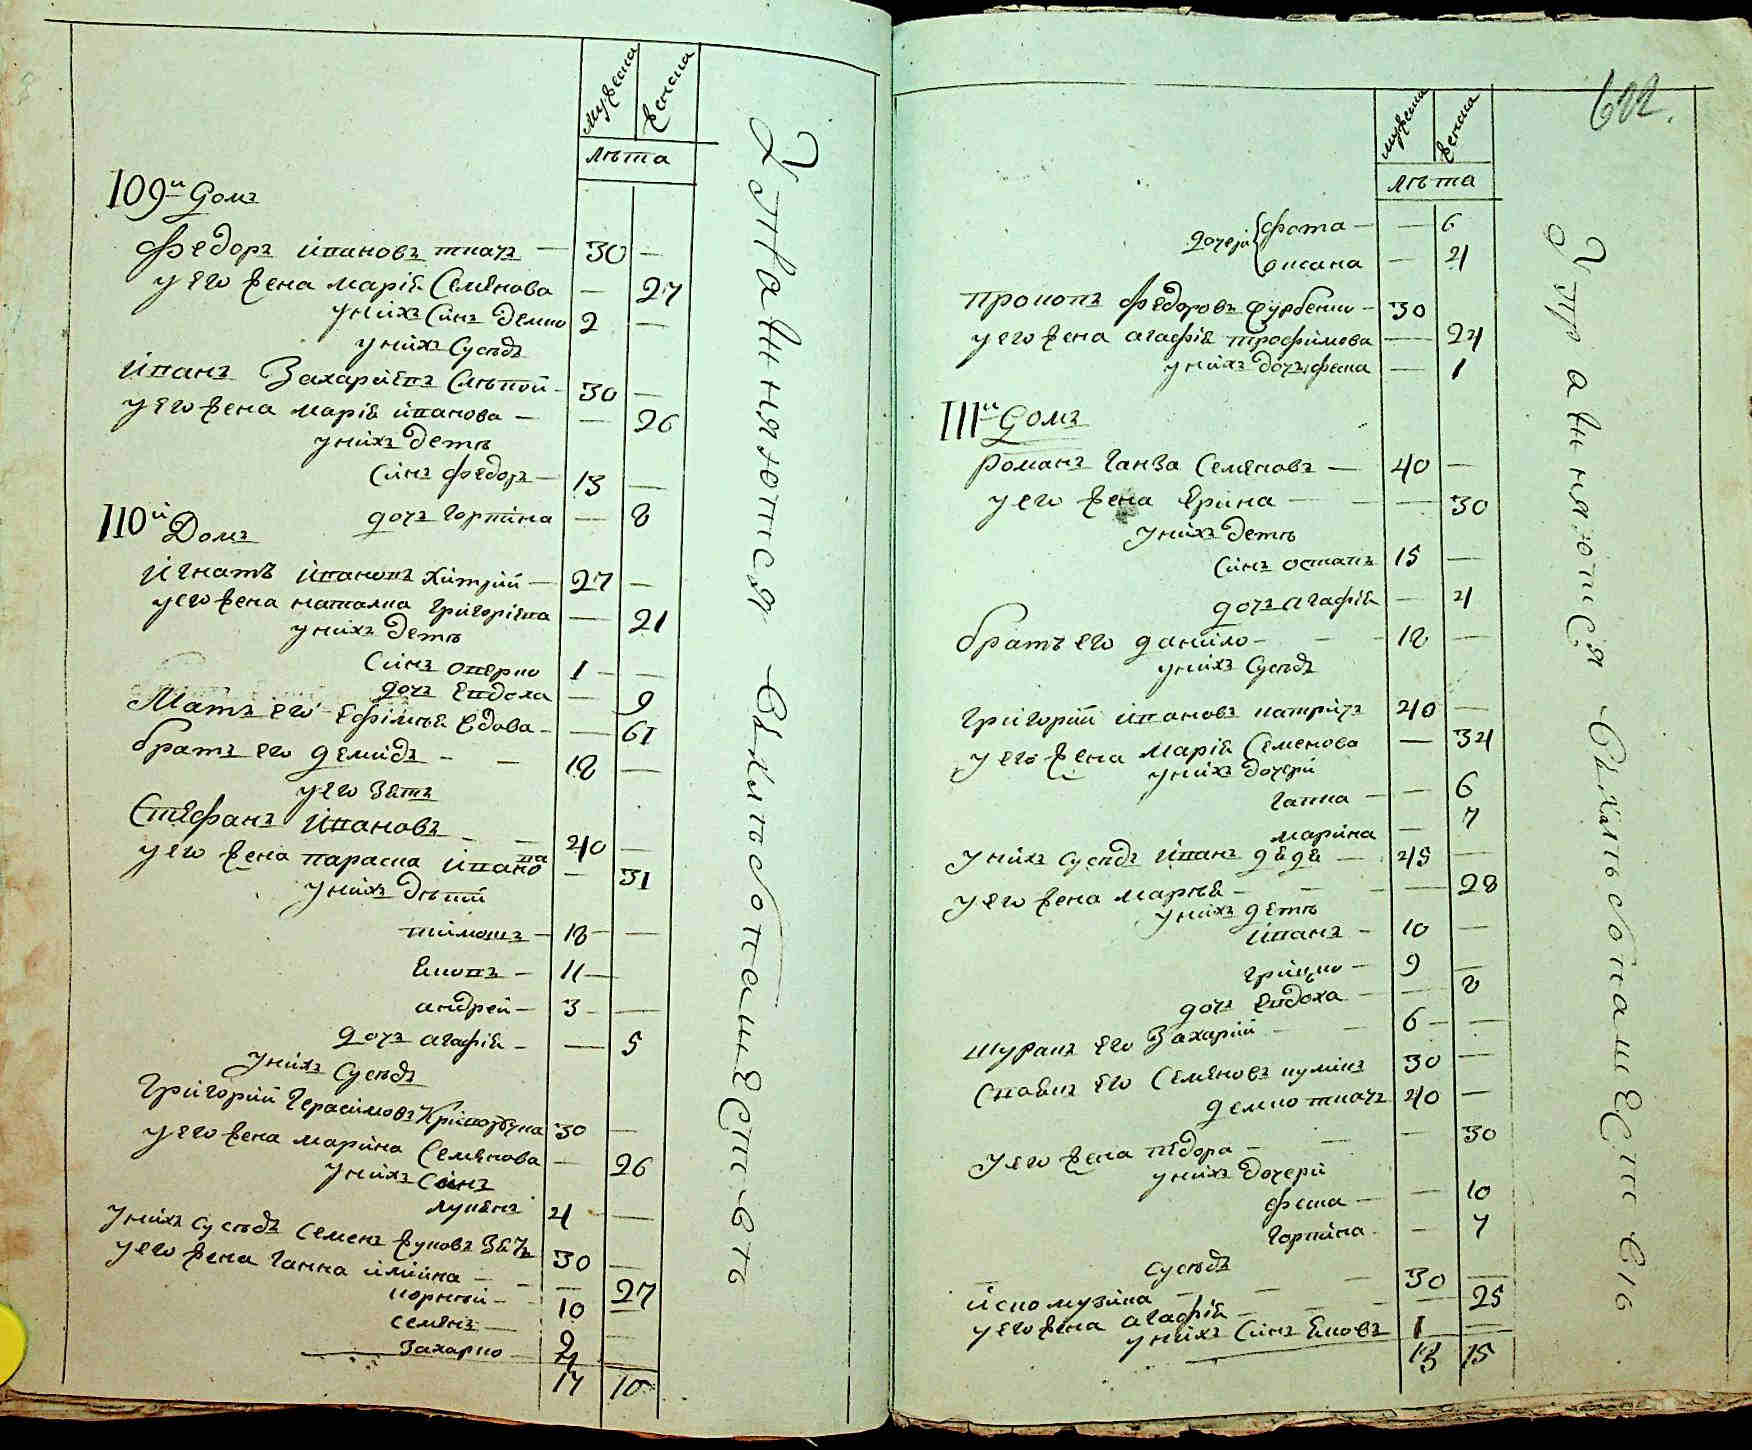 мужеска
женска
лѣта
109й Домъ
Федоръ Ивановъ ткачъ — 30 —
у его жена Марія Семянова — 27
у нихъ синъ Демко 2 —
у нихъ сусѣдъ
Иванъ Захаріевъ Слѣпой 30 —
у его жена Марія Иванова — 26
у нихъ дети
синъ Федоръ — 13 —
дочъ Горпина — 8
110й Домъ
Игнатъ Ивановъ Хитрій — 27 —
у его жена Наталка Григоріева — 21
у нихъ дети
синъ Оверко 1 —
дочъ Евдоха — 9
Мать его Ефимия вдова — 61
братъ его Демидъ — 18 —
у его зять
Стефанъ Ивановъ — 40 —
у его жена Параска Иванова — 31
у нихъ дѣти
Тимошъ — 18 —
Яковъ — 11 —
Андрей — 3 —
дочъ Агафія — 5
у нихъ сусѣдъ
Григорій Герасимовъ 30 —
у его жена Марина Семянова — 26
у нихъ синъ
Лукянъ 4 —
у нихъ сусѣдъ Семенъ Зятъ 30 —
у его жена Ганна — 27
Корній — 10 —
Семянъ — 9 —
Захарко — 4
17 10
У праиняютися Въ хлѣбопашествѣ
622.
мужеска
женска
лѣта
дочери Фота — — 6
Оксана — 4
Прокопъ Федоровъ 30
у его жена Агафія Трофимова — 24
у нихъ дочъ Феска — 1
111й Домъ
Романъ Ганжа Семяновъ — 40 —
у его жена Ярина — 30
у нихъ дети
синъ Остапъ 15 —
дочъ Агафія — 4
братъ его Данило — 18 —
у нихъ сусѣдъ
Григорій Ивановъ 40 —
у его жена Марія Семенова — 34
у нихъ дочери
Ганна — — 6
Марина — 7
у нихъ сусѣдъ Иванъ 45 —
у его жена Марья — 28
у нихъ дети
Иванъ — 10 —
Грицко — 9 —
дочъ Евдоха — 8
Шуранъ его Захарій — 6 —
его Семяновъ 30 —
Демко ткачъ 40 —
у его жена Педора — 30
у нихъ дочери
Феска — — 10
Горпина — 7
сусѣдъ
30 —
у его жена Агафія — 25
у нихъ синъ Яковъ 1 —
13 15
У праиняютися Въ хлѣбопашествѣ